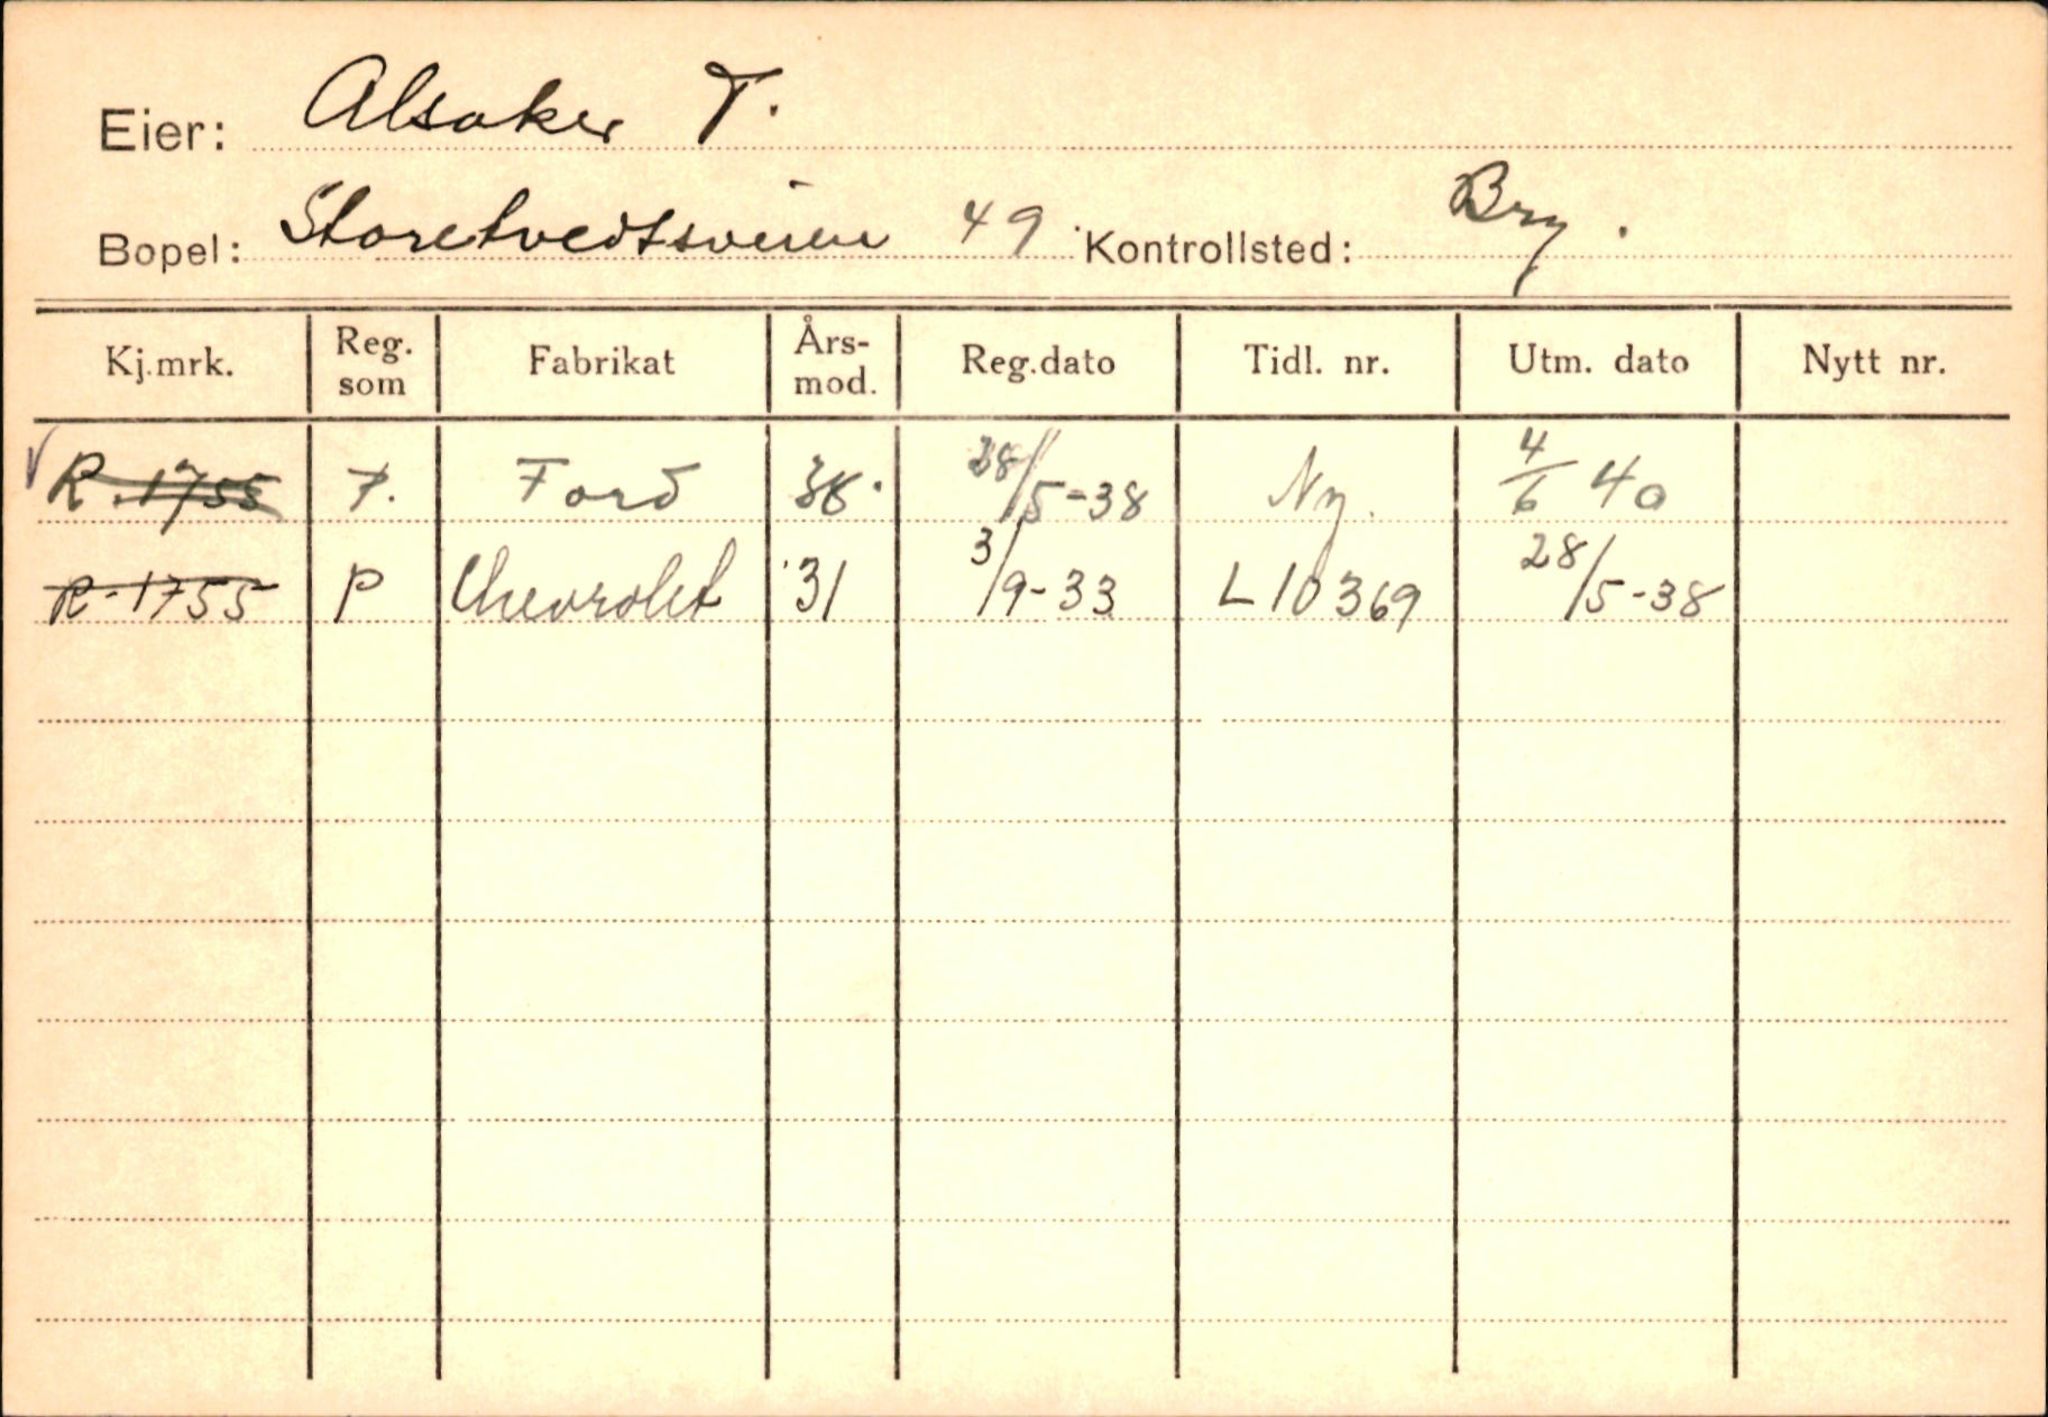 Eier: Alsaker T.
Bopel: Storetvedtsveien 49. Kontrollsted: Bry.
Kj.mrk. Reg. som Fabrikat Års-mod. Reg.dato Tidl. nr. Utm. dato Nytt nr.
R-1755 F. Ford 38. 28/5-38 Ny. 4/6 40
R-1755 P Chevrolet '31 3/9-33 L 10369 28/5-38